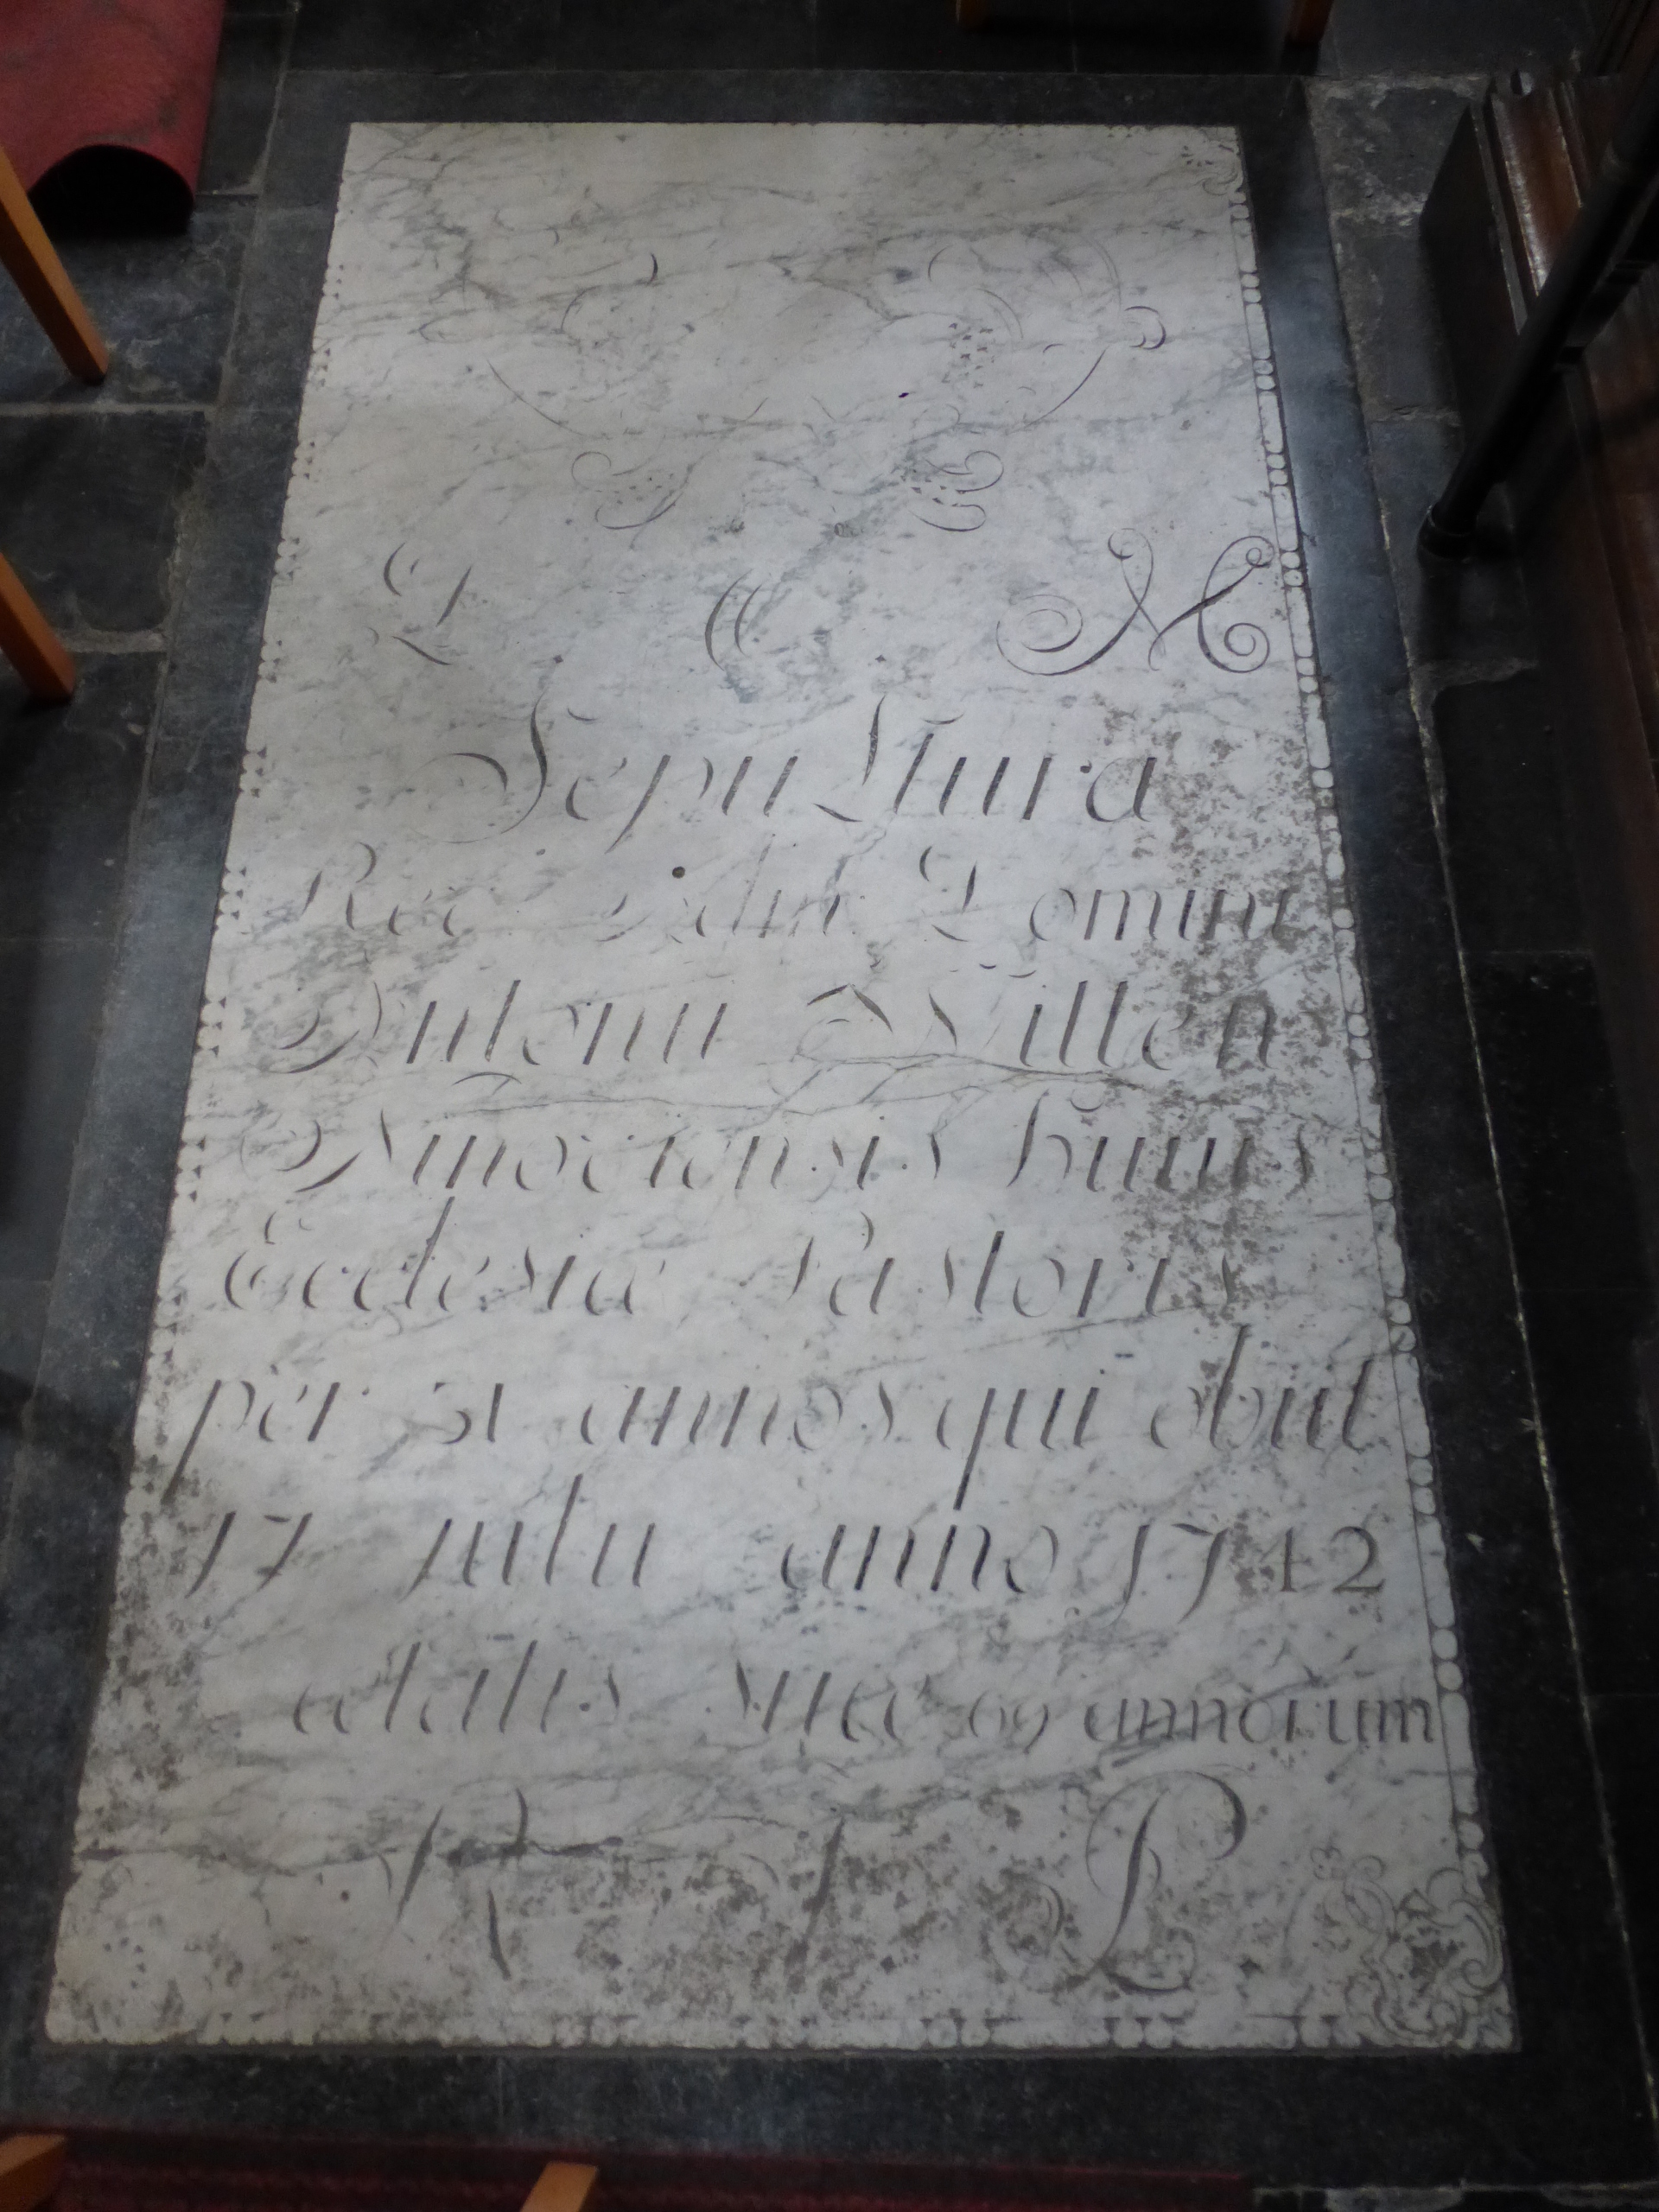 D O M
Sepultura
Rec Adm Domini
Antonii Willen
Amociensis huius
Ecclesiæ Pastoris
per 31 annos qui obiit
17 julii anno 1742
ætatis suæ 69 annorum
R I P